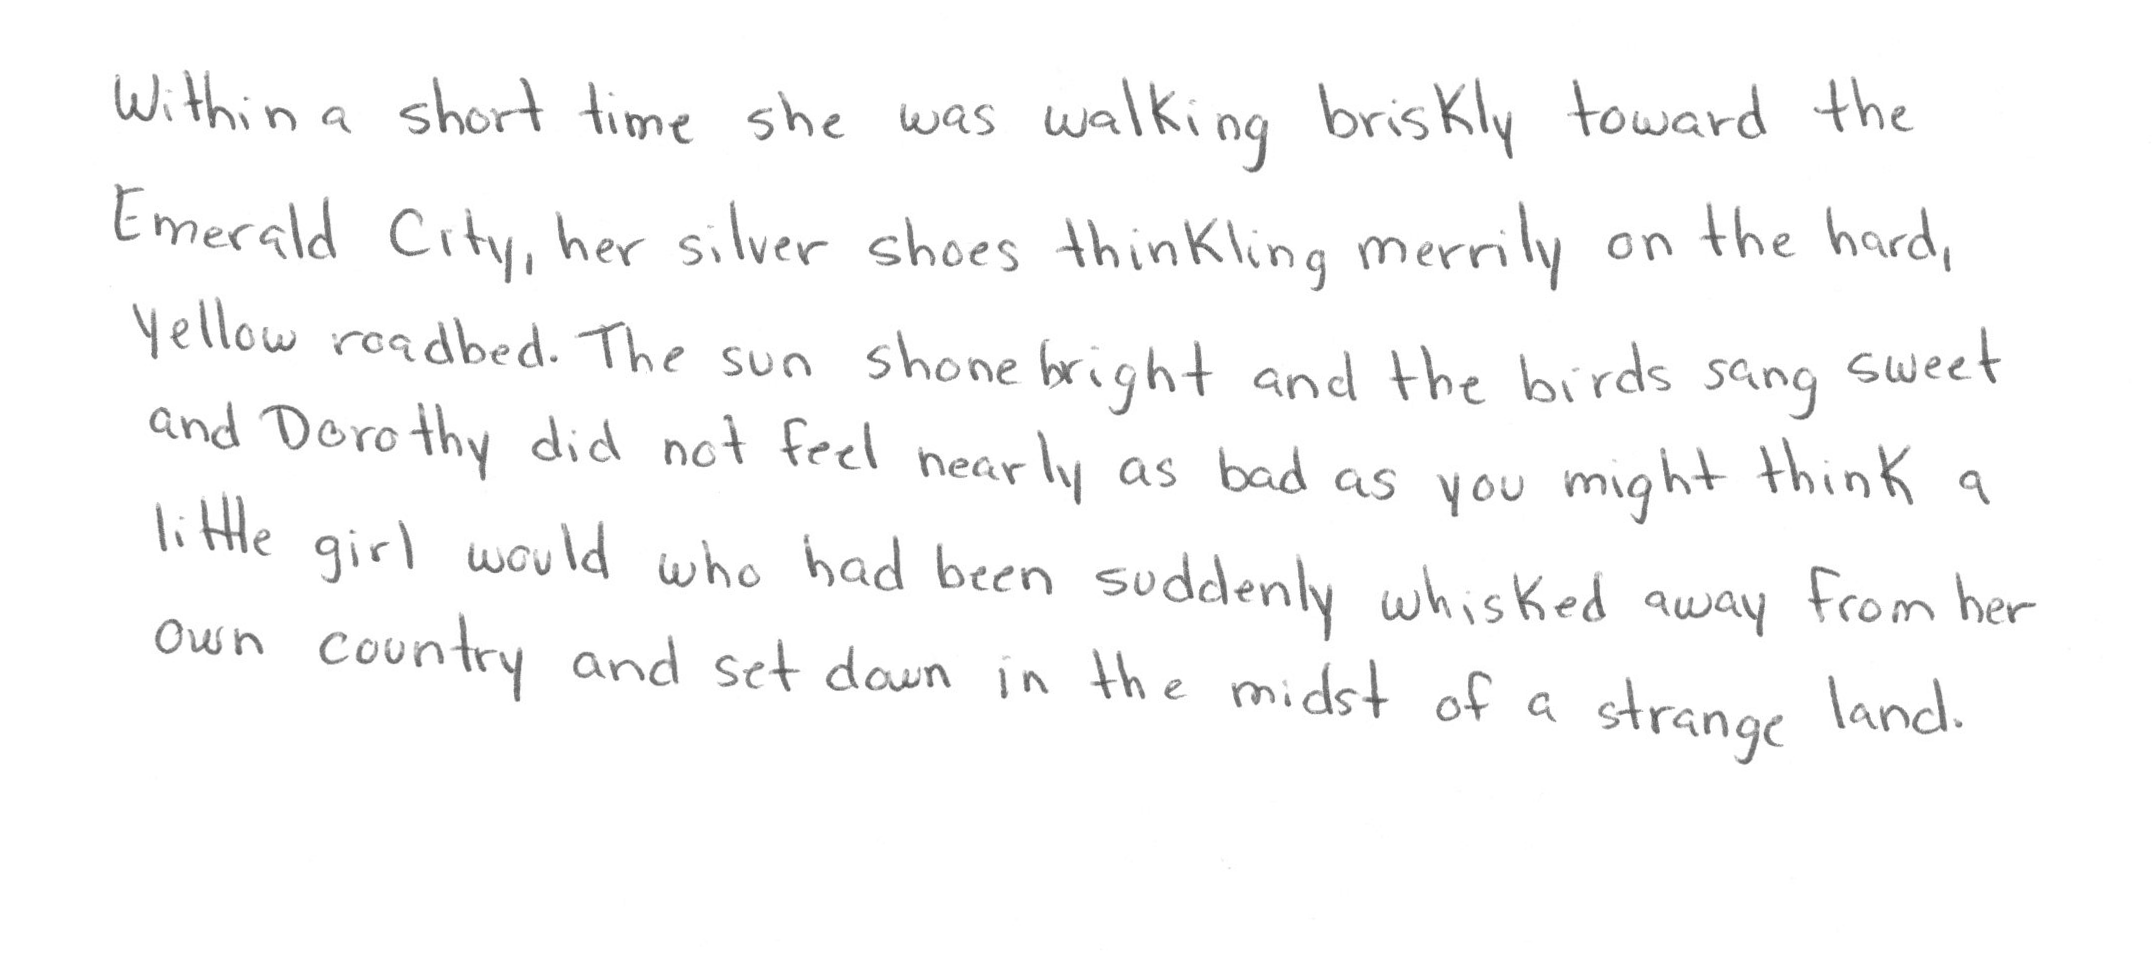 Within a short time she was walking briskly toward the
Emerald City, her silver shoes thinkling merrily on the hard,
yellow roadbed. The sun shone bright and the birds sang sweet
and Dorothy did not feel nearly as bad as you might think a
little girl would who had been suddenly whisked away from her
own country and set down in the midst of a strange land.